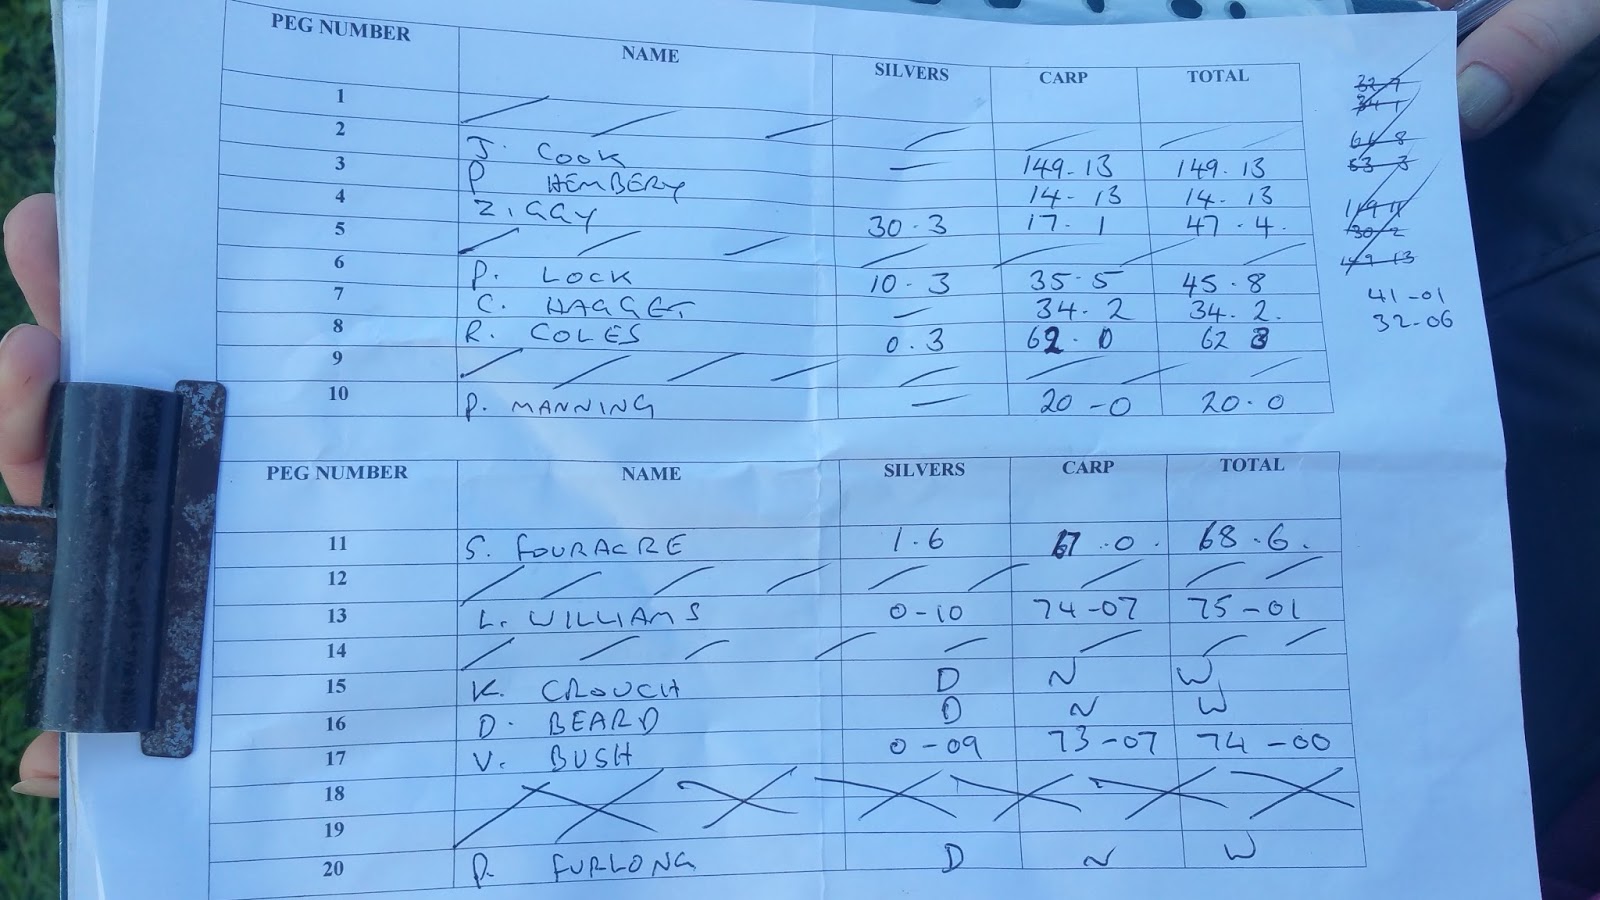 PEG NUMBER NAME SILVERS CARP TOTAL
1
2 J. COOK — 149.13 149.13
3 P HEMBERY 14-13 14-13
4 ZIGGY 30.3 17.1 47.4.
5
6 P. LOCK 10.3 35.5 45.8
7 C. HAGGET — 34.2 34.2.
8 R. COLES 0.3 62.0 62 3
9
10 P. MANNING — 20-0 20.0
41-01
32-06
PEG NUMBER NAME SILVERS CARP TOTAL
11 S. FOURACRE 1.6 67.0. 68.6.
12
13 L. WILLIAMS 0-10 74-07 75-01
14
15 K. CROUCH D N W
16 D. BEARD D N W
17 V. BUSH 0-09 73-07 74-00
18
19
20 P. FURLONG D N W